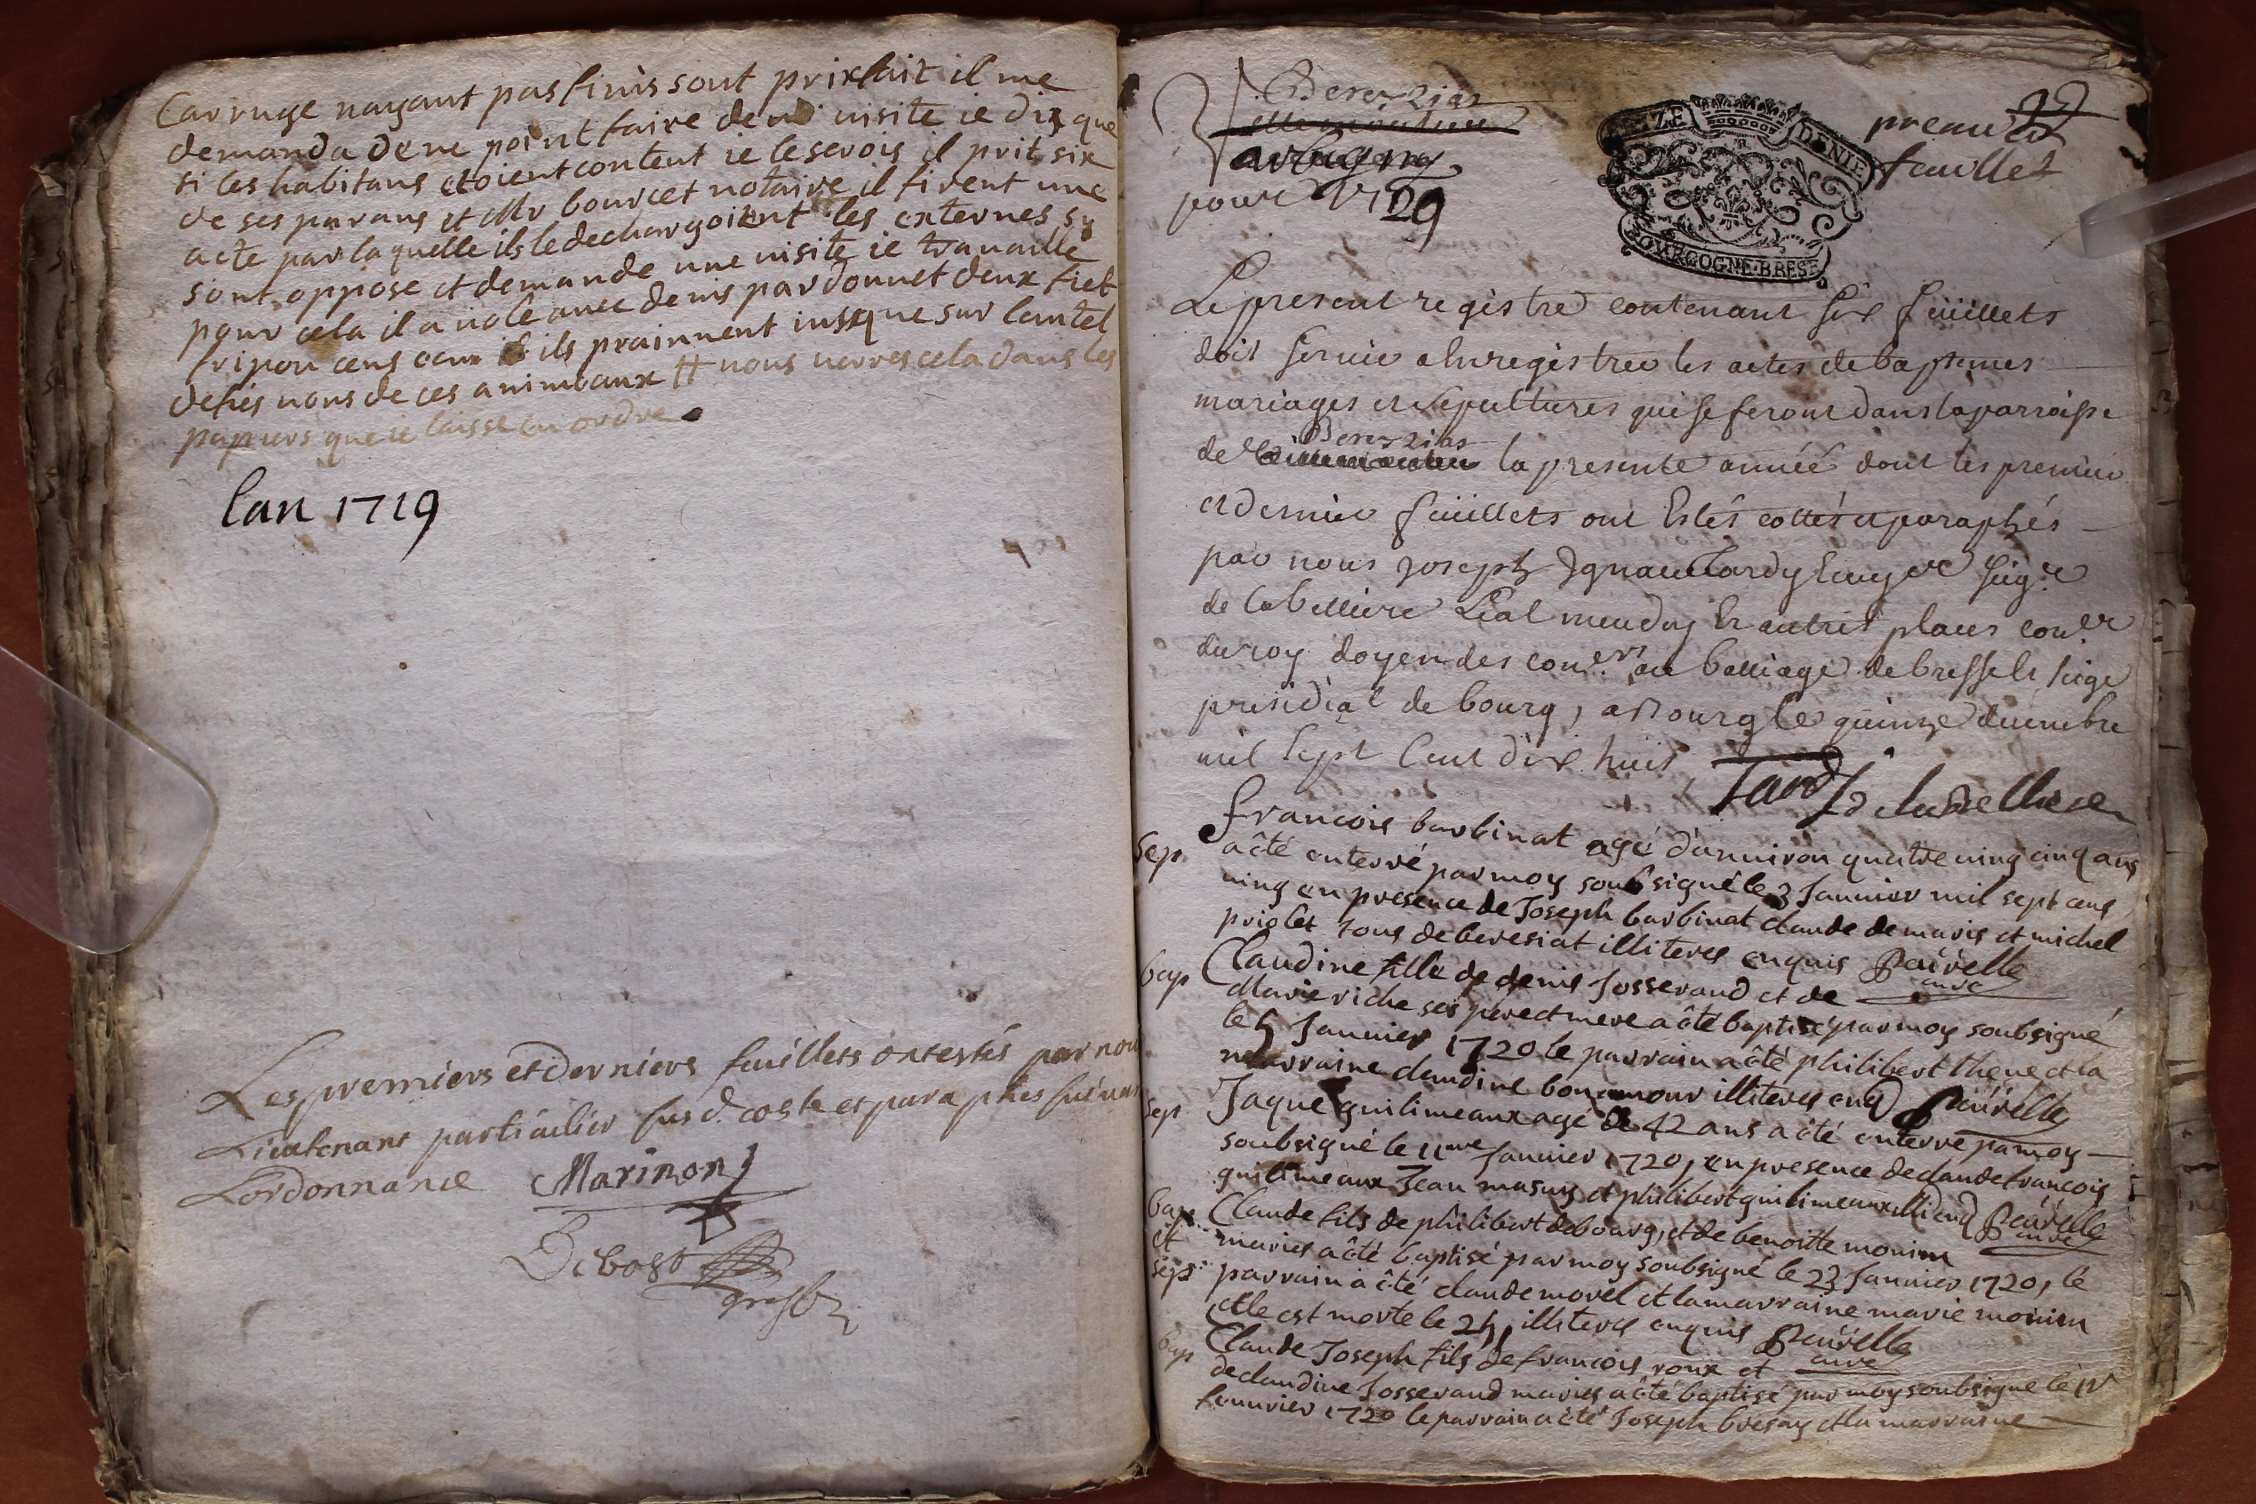 Carruge nayant pas finis sont prixfait il me
demanda de ne point faire de visite ie dix que
si les habitans etoient content ie leserois il prit six
de ses parans et Mr bourcet notaire il firent une
acte par laquelle ils le dechargoient les externes sy
sont oppose et demande une visite ie travaille
pour cela il a volé avec denis pardonnet deux
fripon ceux ils prainnent iusque sur lautel
nons de ces animeaux # nous verres cela dans les
papiers que ie laisse en ordre
lan 1719
Les premiers et derniers feuillets ont estés par nous
Lieutenant particulier sus d. costés et paraphes suivant
Lordonnance Marinon
Debost
greffier
Beresziat
pour 1729
preau
feuillet
SEIZE DENIE
BOURGOGNE·BRESE
Le present registre contenant six feüillets
doit servir a Enregistrer les actes de baptemes
mariages et sepultures qui se feront dans la parroisse
Beresziat
de la presente année dont les premier
et dernier feüillets ont Estés cottés et paraphés
par nous Joseph Ignace Tardy Escuyer seigr
de la belliere Leal et autres places coner
du roy doyen des coners au balliage de bresse et siege
presidial de bourg, a Bourg le quinze decembre
mil sept Cent dix huit
Tardy de la Belliere
francois barbinat agé d'anniron quatre ving cinq ans
sep. a été enterré par moy soubsigné le 3 Jannier mil sept cens
ving en presence de Joseph barbinat claude demaris et michel
priolet tous de beresiat illiteres enquis Beüvelle
curé
bap Claudine fille de denis Josserand et de
Marie riche ses pere et mere a été baptisé par moy soubsigné
le 5 Jannier 1720 le parrain a été philibert thene et la
marraine claudine bonamour illiteres enq Beüvelle
sep Jaque guilimeaux agé de 42 ans a été enterre par moy
soubsigné le 11me Jannier 1720, en presence de claude francois
guilimeaux Jean masuy et philibert guilimeaux illi enq Beüvelle
curé
bap. Claude fils de philibert debourg, et de benoitte monin
et maries a été baptisé par moy soubsigné le 23 Jannier 1720, le
sep: parrain a été claude morel et la marraine marie monin
elle est morte le 24, illiteres enquis Beüvelle
curé
bap Claude Joseph fils de francois roux et
de claudine Josserand maries a été baptisé par moy soubsigné le
feuvrier 1720 le parrain a été Joseph bresay et la marraine